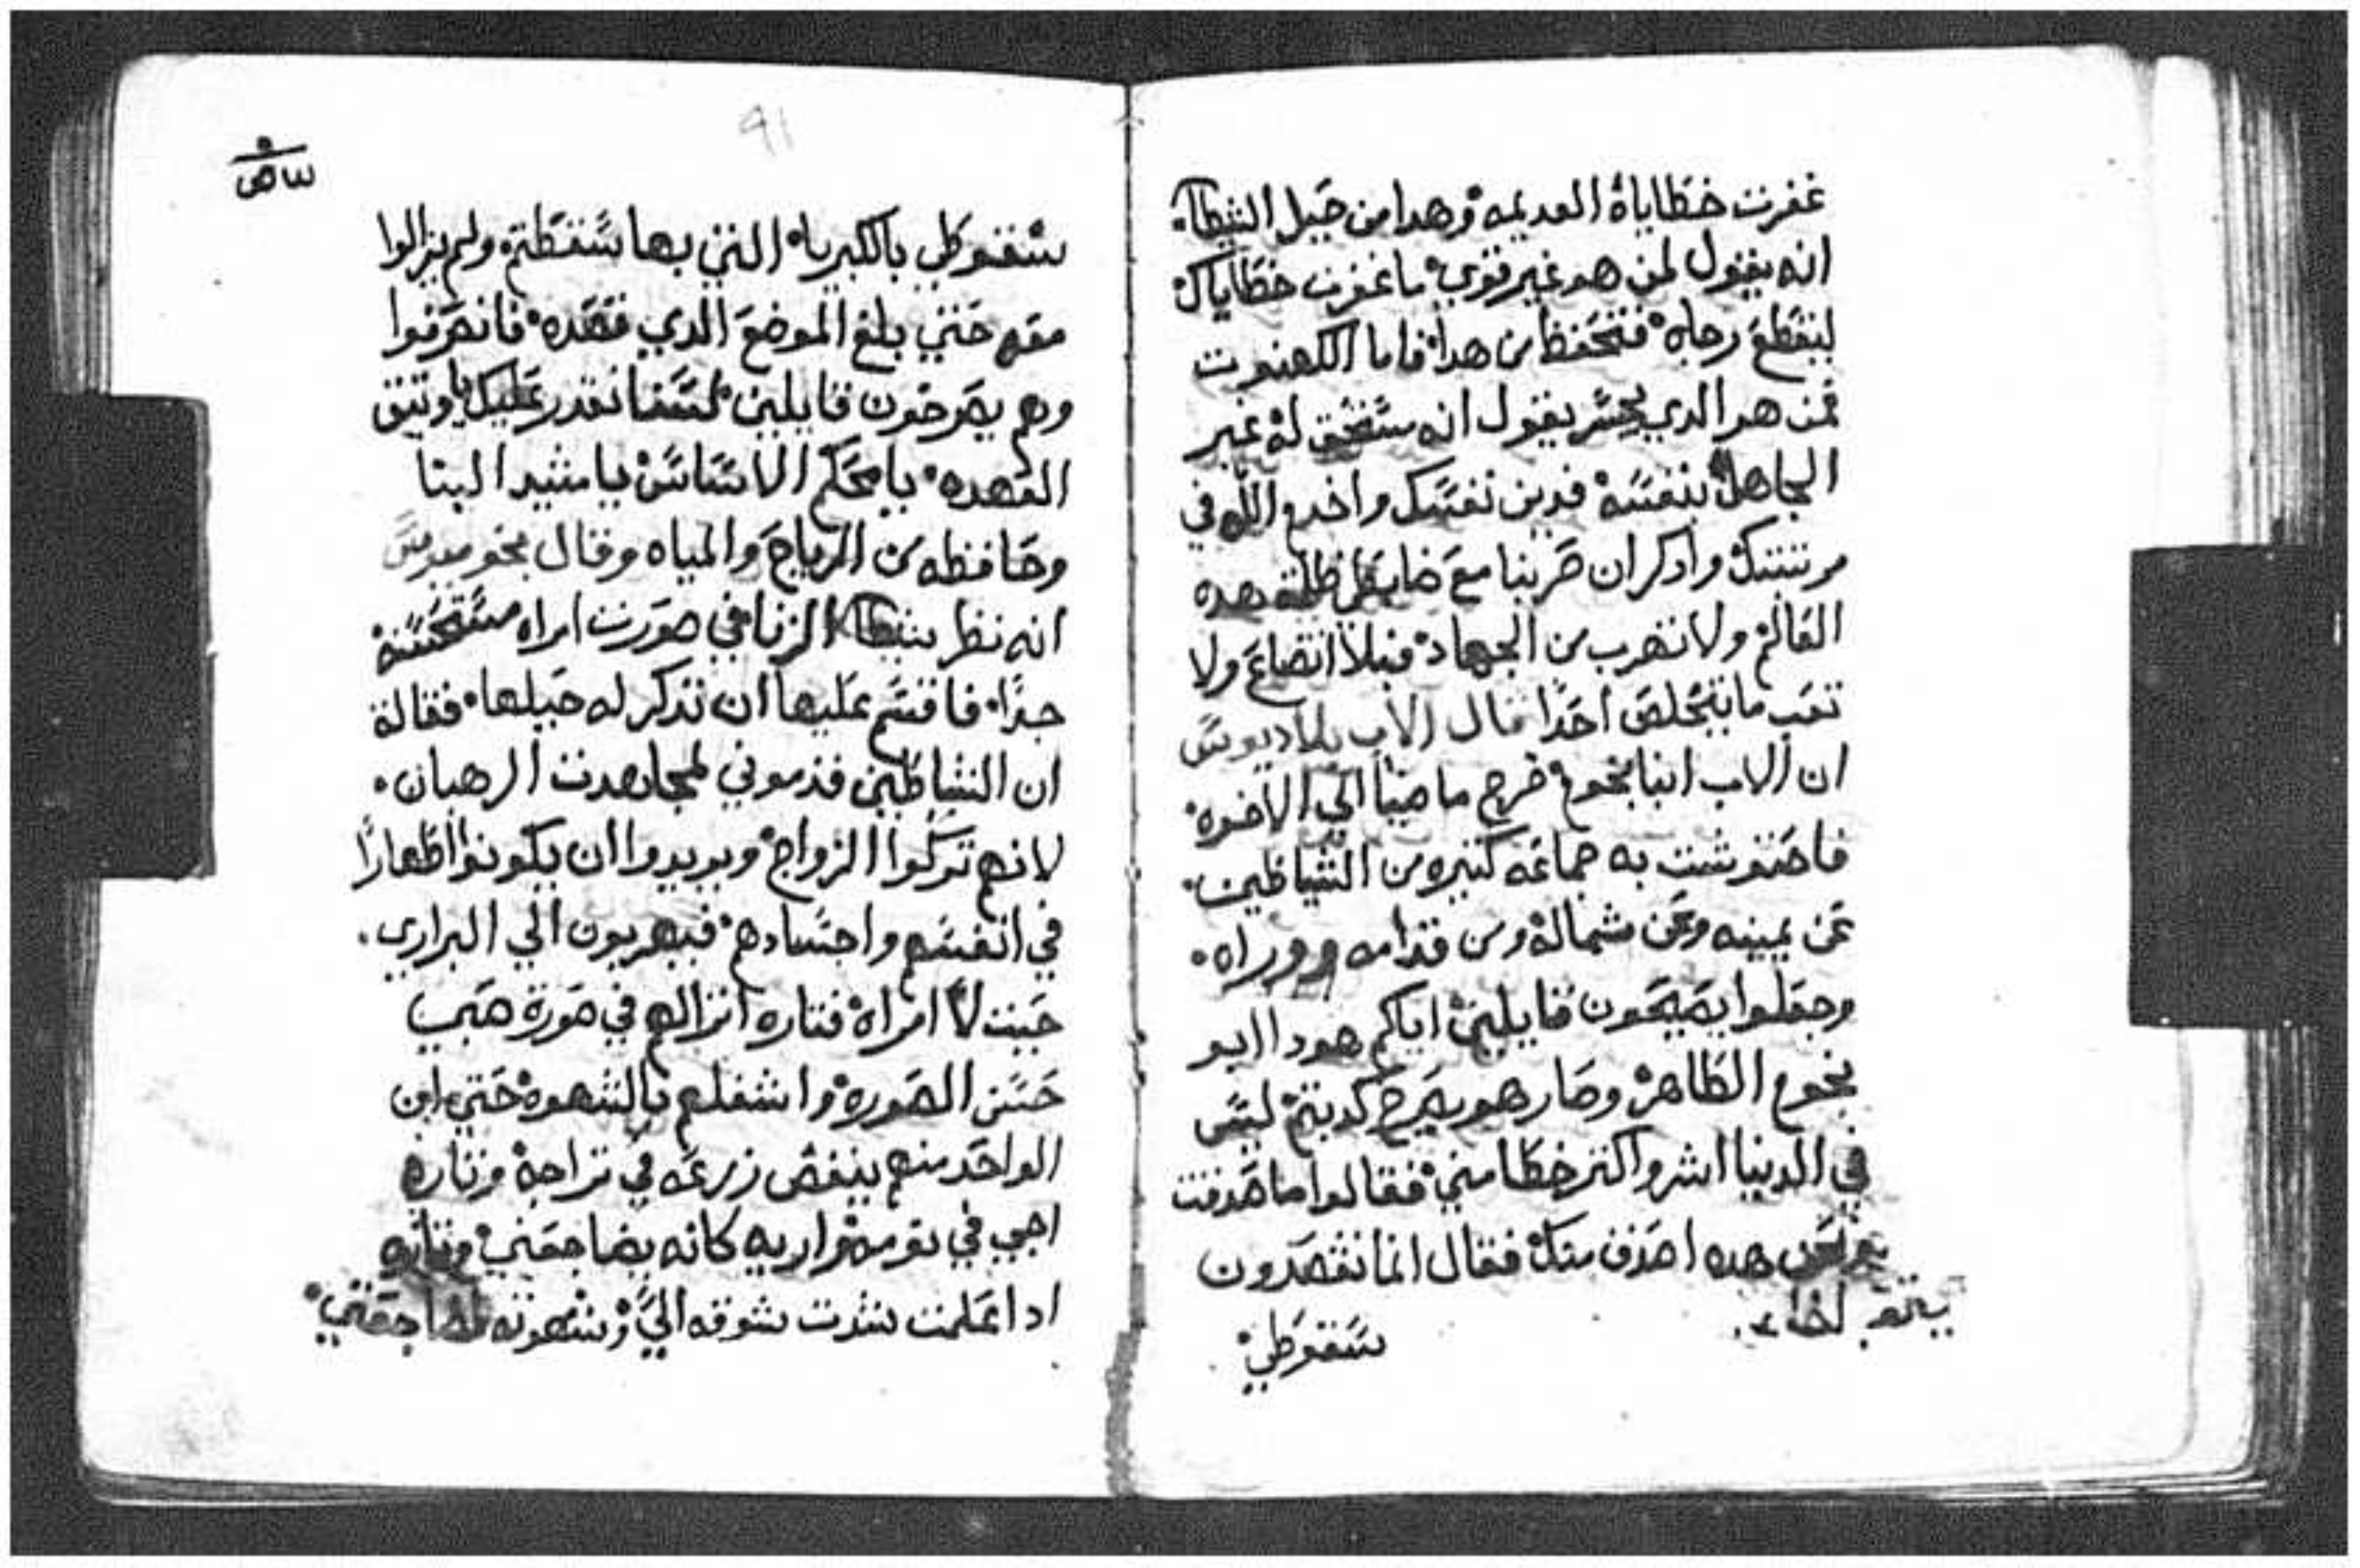 غفرت خطاياة العديمه وهدا من حيل الشيطان
انه يقول لمن هو غير قوي ما غفرت خطاياك
لينقطع رجاه فتحفظ من هدا فاما الكهنوت
فمن هو الدي يجسر يقول انه مستحق له غير
الجاهل بنفسه فدين نفسك واخدم الله في
مرتبتك وادكر ان حربنا مع ضابطي ظلمة هده
العالم ولا تهرب من الجهاد فبلا اتضاع ولا
تعب ما يتخلص احدا قال الاب بلاديوس
ان الاب انبا بخوم خرج ماضيا الي الاخوه
فاحتوشت به جماعه كتيره من الشياطين
عن يمينه وعن شماله ومن قدامه ووراه
وجعلوا يصيحون قايلين اياكم هودا ابو
بخوم الطاهر وصار هو يصرخ كدبتم ليس
في الدنيا اشر واكتر خطا مني فقالوا ما صدقت
هده اصدق منك فقال انما تقصدون
سقوطي
91
سقوطي بالكبرياء التي بها سقطتم ولم يزالوا
معه حتي بلغ الموضع الدي قصده فانصرفوا
وهم يصرخون قايلين لسنا نقدر عليك يا وتيق
القعده يا محكم الاساس يا مشيد البنا
وحافظه من الرياح والمياه وقال بخوميوس
انه نظر شيطان الزنا في صورت امراه مستحسنة
جدا فاقسم عليها ان تدكر له حيلها فقالة
ان الشياطين قدموني لمجاهدت الرهبان
لانهم تركوا الزواج ويريدوا ان يكونوا اطهارا
في انفسهم واجسادهم فيهربون الي البراري
حيت لا امراة فتاره اترالهم في صورة صبي
حسن الصوره واشغلهم بالشهوه حتي ان
الواحد منهم ينفض زرعه في تراحه وتاره
اجي في نومه واريه كانه يضاجعني وتاره
ادا علمت شدت شوقه الي وشهوته لمضاجعتي